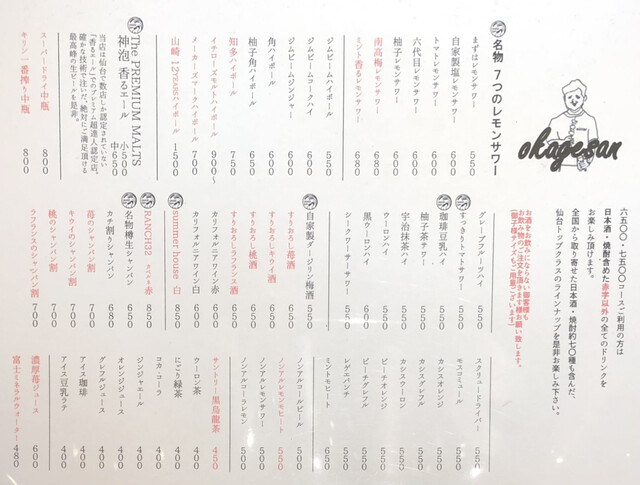 okagesan
名物 7つのレモンサワー
まずはレモンサワー 550
自家製塩レモンサワー 600
トマトレモンサワー 600
六代目レモンサワー 600
柚子レモンサワー 600
南高梅レモンサワー 680
ミント香るレモンサワー 680
ジムビームハイボール 550
ジムビームコークハイ 600
ジムビームジンジャー 600
角ハイボール 600
柚子角ハイボール 650
知多ハイボール 750
イチローズモルトハイボール 900〜
メーカーズマークハイボール 700
山崎 12YEARSハイボール 1500
The PREMIUM MALTS
神泡 香るエール 小500 中650
当店は仙台で数店しか認定されていない
「香るエール」でのプレミアム超達人認定店。
確かな技術で注いだ、絶対にご満足頂ける
最高峰の生ビールを是非。
スーパードライ中瓶 800
キリン一番搾り中瓶 800
六五〇〇・七五〇〇コースご利用の方は
日本酒・焼酎含めた赤字以外の全てのドリンクを
お楽しみ頂けます。
全国から取り寄せた日本酒・焼酎約七〇種も含んだ、
仙台トップクラスのラインナップを是非お楽しみ下さい。
お酒をお飲みにならない御客様も
お飲み物のご注文を頂きます様お願い致します。
(御子様サイズもご用意ございます)
グレープフルーツハイ 550
すっきりトマトサワー 550
珈琲豆乳ハイ 550
柚子茶サワー 550
宇治抹茶ハイ 550
ウーロンハイ 550
黒ウーロンハイ 600
シークワーサーサワー 550
自家製ダージリン梅酒 550
すりおろし苺酒 650
すりおろしキウイ酒 650
すりおろし桃酒 650
すりおろしラフランス酒 650
カリフォルニアワイン白 600
カリフォルニアワイン赤 600
summer house 白 850
RANCH32 赤 850
名物樽生シャンパン 650
カチ割りシャンパン 650
苺のシャンパン割 700
キウイのシャンパン割 700
桃のシャンパン割 700
ラフランスのシャンパン割 700
スクリュードライバー 550
モスコミュール 550
カシスオレンジ 550
カシスグレフル 550
カシスウーロン 550
ピーチオレンジ 550
ピーチグレフル 550
レゲエパンチ 550
ミントモヒート 650
ノンアルコールビール 500
ノンアルレモンモヒート 550
ノンアルレモンサワー 500
ノンアルコーラレモン 500
サントリー黒烏龍茶 450
ウーロン茶 400
にごり緑茶 400
コカ・コーラ 400
ジンジャエール 400
オレンジジュース 400
グレフルジュース 400
アイス珈琲 400
アイス豆乳ラテ 400
濃厚苺ジュース 600
富士ミネラルウォーター 480